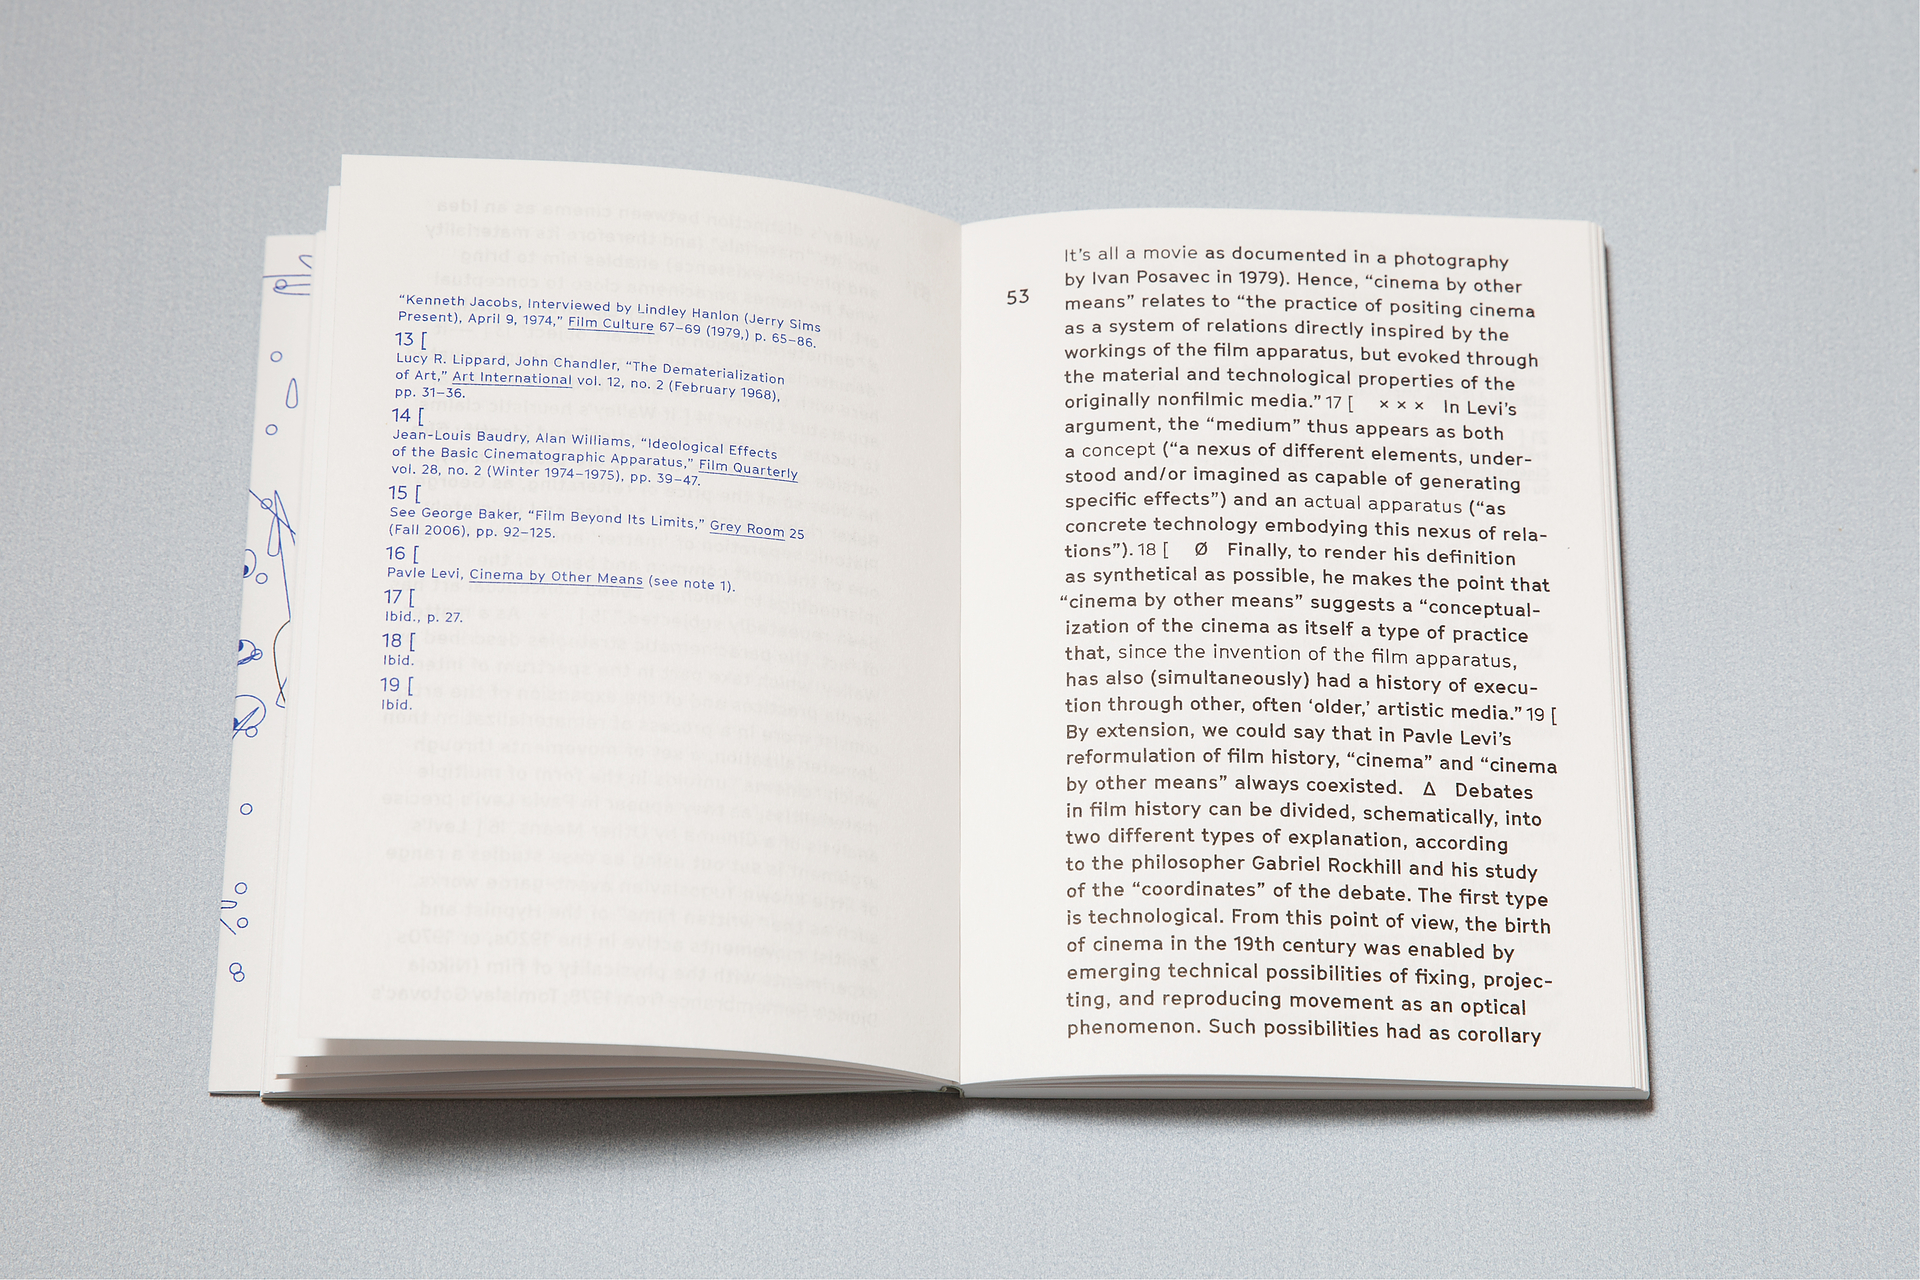 “Kenneth Jacobs, Interviewed by Lindley Hanlon (Jerry Sims
Present), April 9, 1974,” Film Culture 67–69 (1979,) p. 65–86.
13 [
Lucy R. Lippard, John Chandler, “The Dematerialization
of Art,” Art International vol. 12, no. 2 (February 1968),
pp. 31–36.
14 [
Jean-Louis Baudry, Alan Williams, “Ideological Effects
of the Basic Cinematographic Apparatus,” Film Quarterly
vol. 28, no. 2 (Winter 1974–1975), pp. 39–47.
15 [
See George Baker, “Film Beyond Its Limits,” Grey Room 25
(Fall 2006), pp. 92–125.
16 [
Pavle Levi, Cinema by Other Means (see note 1).
17 [
Ibid., p. 27.
18 [
Ibid.
19 [
Ibid.
53
It’s all a movie as documented in a photography
by Ivan Posavec in 1979). Hence, “cinema by other
means” relates to “the practice of positing cinema
as a system of relations directly inspired by the
workings of the film apparatus, but evoked through
the material and technological properties of the
originally nonfilmic media.” 17 [ × × × In Levi’s
argument, the “medium” thus appears as both
a concept (“a nexus of different elements, under-
stood and/or imagined as capable of generating
specific effects”) and an actual apparatus (“as
concrete technology embodying this nexus of rela-
tions”). 18 [ Ø Finally, to render his definition
as synthetical as possible, he makes the point that
“cinema by other means” suggests a “conceptual-
ization of the cinema as itself a type of practice
that, since the invention of the film apparatus,
has also (simultaneously) had a history of execu-
tion through other, often ‘older,’ artistic media.” 19 [
By extension, we could say that in Pavle Levi’s
reformulation of film history, “cinema” and “cinema
by other means” always coexisted. Δ Debates
in film history can be divided, schematically, into
two different types of explanation, according
to the philosopher Gabriel Rockhill and his study
of the “coordinates” of the debate. The first type
is technological. From this point of view, the birth
of cinema in the 19th century was enabled by
emerging technical possibilities of fixing, projec-
ting, and reproducing movement as an optical
phenomenon. Such possibilities had as corollary